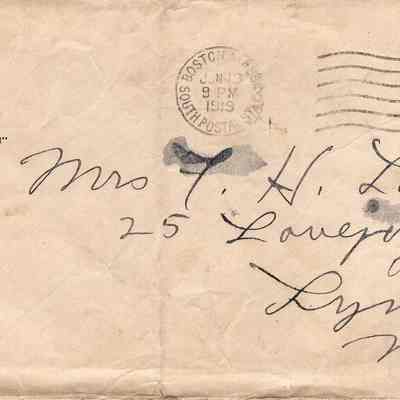 BOSTON
JUN 13
9 PM
1919
SOUTH POSTAL STA.
Mrs T. H. L
25 Lovejoy
Lyn
M